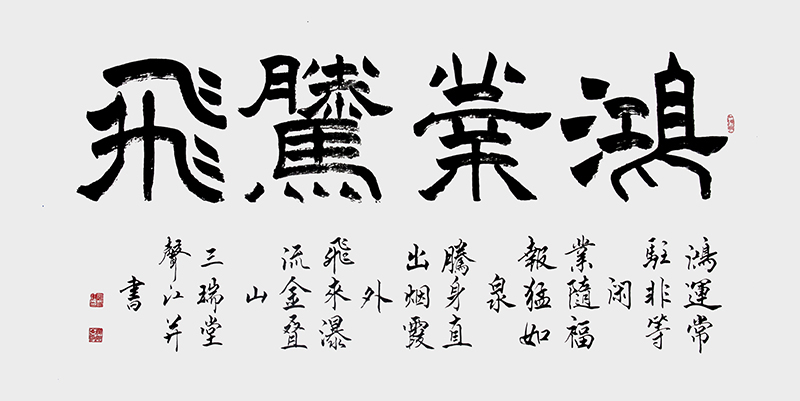 鴻業騰飛
鴻運常
駐非等
闲
業隨福
報猛如
泉
騰身直
出烟霞
外
飛来瀑
流金叠
山
三瑞堂
聲江并
書